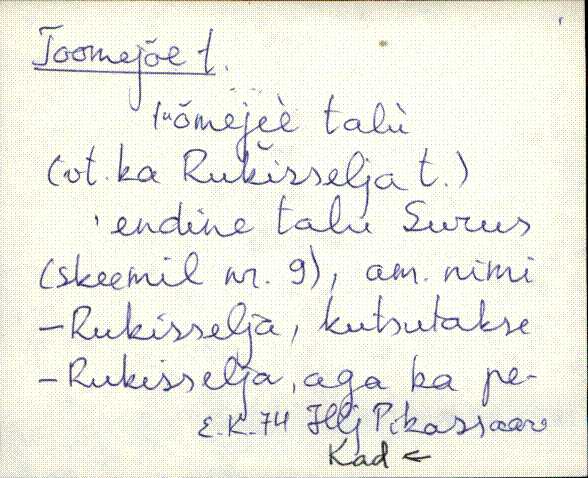 Toomejõe t.
tuömejèe talù
(vt. ka Rukisselja t.)
endine talu Surus
(skeemil nr. 9), am. nimi
– Rukisselja, kutsutakse
– Rukisselja, aga ka pe-
E.K. 74 Hlj Pikassaar
Kad ←